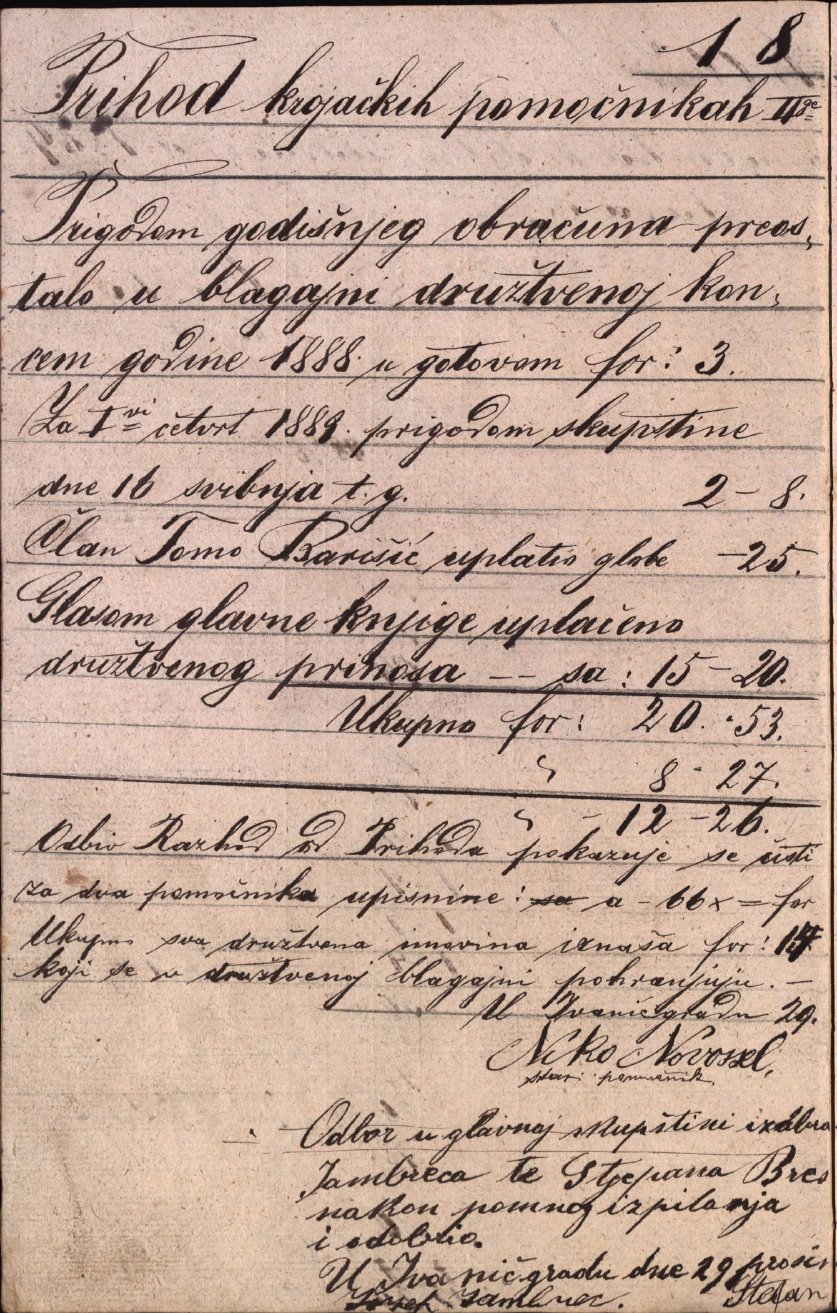 18
Prihod krojačkih pomoćnikah II ge
Prigodom godišnjeg obračuna preos„
talo u blagajni družtvenoj kon„
cem godine 1888. u gotovom for: 3.
Za I vi četvrt 1889. prigodom skupštine
dne 16 svibnja t. g. 2 – 8.
Član Tomo Barišić uplatio globe – 25.
Glasom glavne knjige uplaćeno
družtvenog prinosa –– sa: 15 – 20.
Ukupno for: 20. 53.
„ 8 - 27.
„ – 12 – 26.
Odbiv Razhod od Prihoda pokazuje se čisti
za dva pomoćnika upisnine: a – 66x = for
Ukupno sva družtvena imovina iznaša for:
koji se u družtvenoj blagajni pohranjuju. –
U Ivanićgradu 29.
Niko Novossel,
stari pomoćnik
Odbor u glavnoj skupštini izabra
Jambreca te Stjepana Bres
nakon pomnog izpitanja
i odobrio.
U Ivanićgradu dne 29 prosin
Josef Jambrec. Stefan